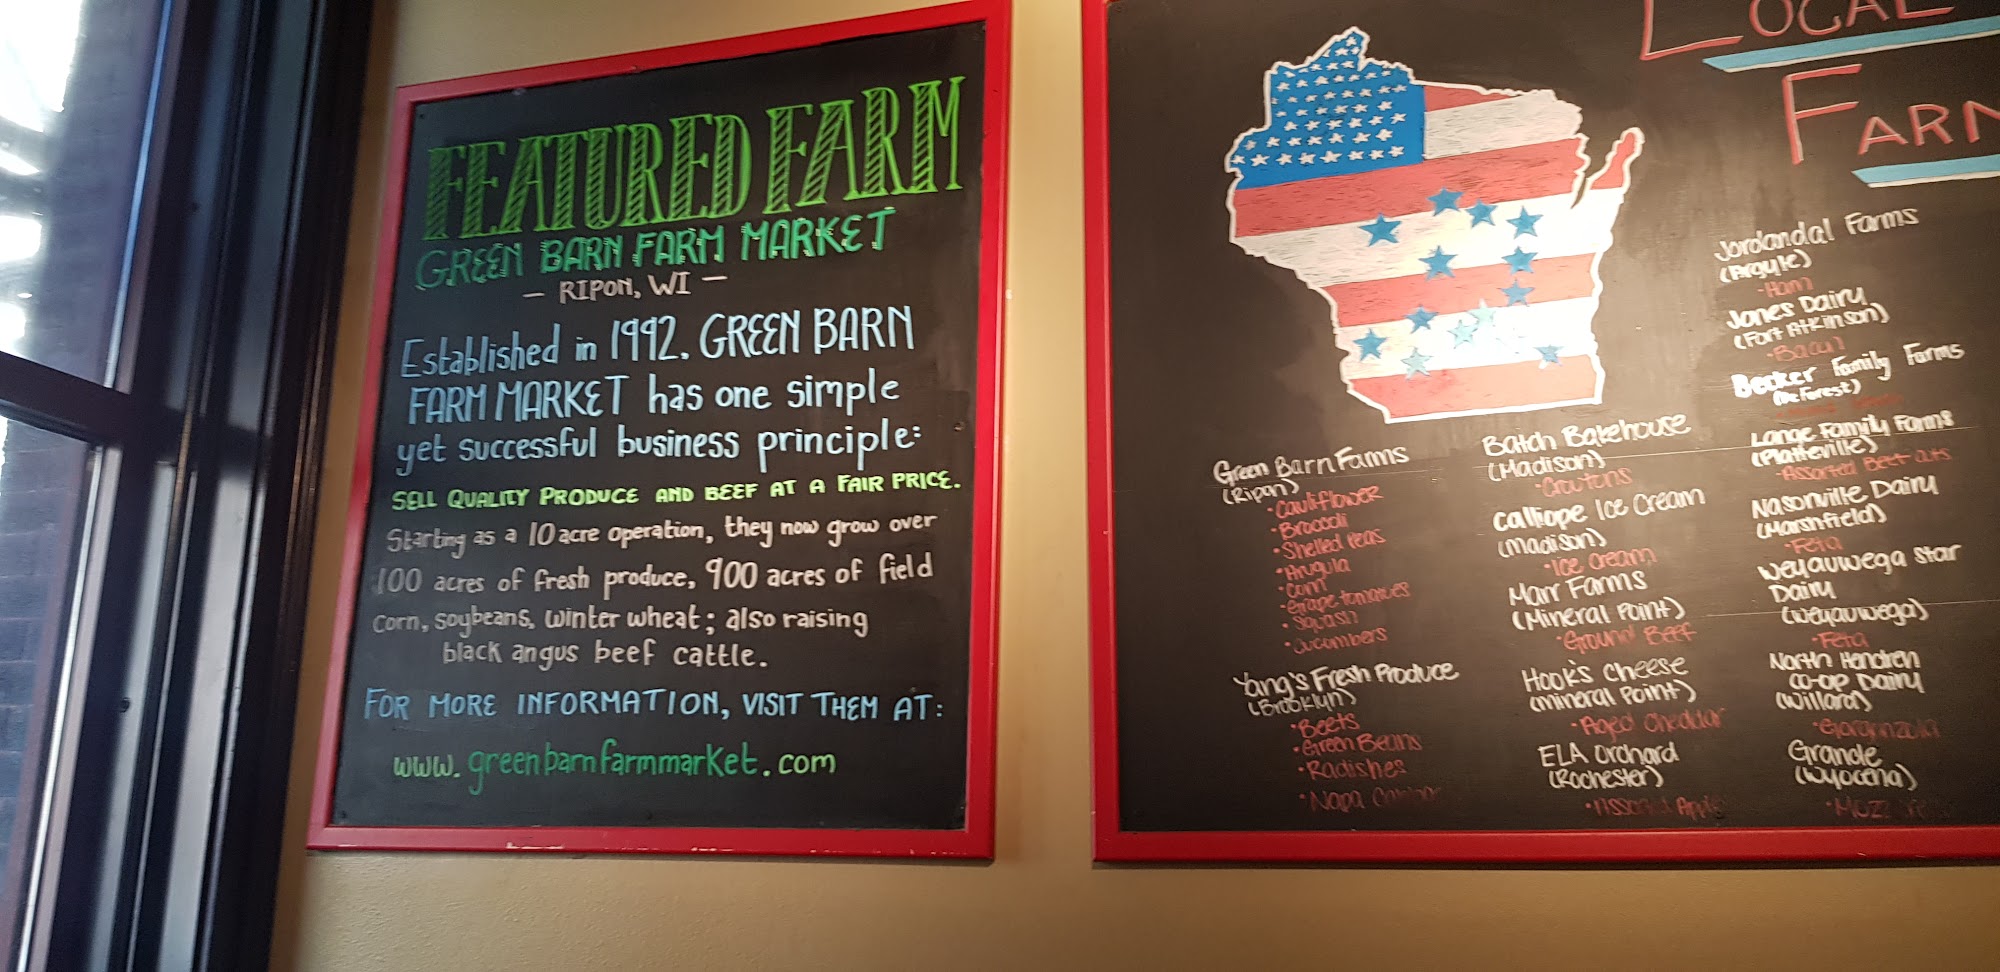 FEATURED FARM
GREEN BARN FARM MARKET
— RIPON, WI —
Established in 1992. GREEN BARN
FARM MARKET has one simple
yet successful business principle:
SELL QUALITY PRODUCE AND BEEF AT A FAIR PRICE.
Starting as a 10 acre operation, they now grow over
100 acres of fresh produce, 900 acres of field
corn, soybeans, winter wheat; also raising
black angus beef cattle.
FOR MORE INFORMATION, VISIT THEM AT:
www.greenbarnfarmmarket.com
LOCAL
FARM
Green Barn Farms
(Ripon)
• Cauliflower
• Broccoli
• Shelled Peas
• Arugula
• Corn
• Grape tomatoes
• Squash
• Cucumbers
Yang's Fresh Produce
(Brooklyn)
• Beets
• Green Beans
• Radishes
• Napa
Batch Bakehouse
(Madison)
• Croutons
Calliope Ice Cream
(Madison)
• Ice Cream
Marr Farms
(Mineral Point)
• Ground Beef
Hook's Cheese
(Mineral Point)
• Aged Cheddar
ELA Orchard
(Rochester)
Jordandal Farms
(Argyle)
• Ham
Jones Dairy
(Fort Atkinson)
• Bacon
Becker Family Farms
(De Forest)
Lange Family Farms
(Platteville)
• Assorted Beef Cuts
Nasonville Dairy
(Marshfield)
• Feta
Weyauwega Star
Dairy
(Weyauwega)
• Feta
North Hendren
Co-op Dairy
(Willard)
• Gorgonzola
Grande
(Wyocena)